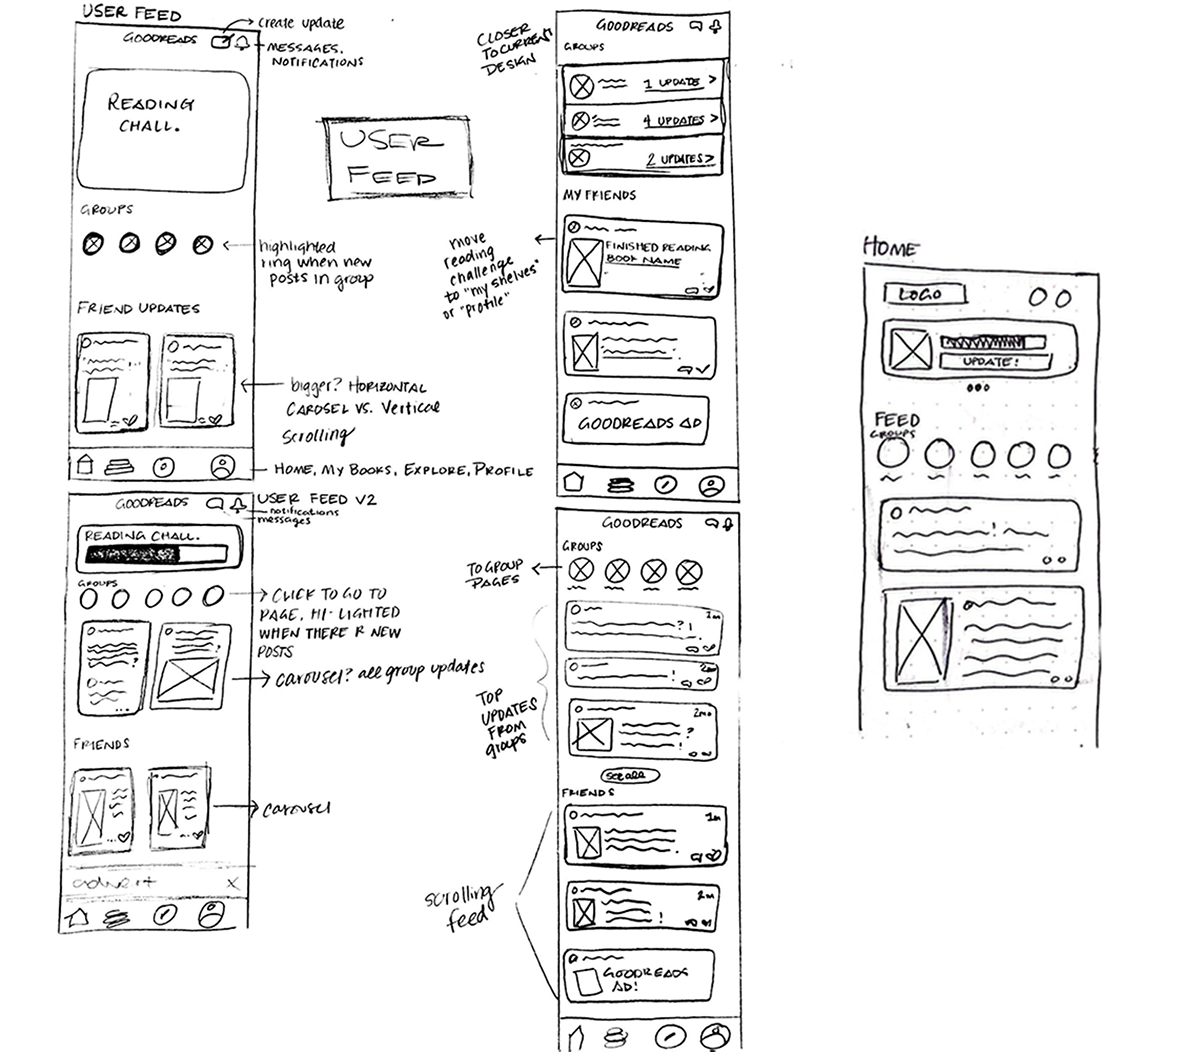 USER FEED
create update
GOODREADS
MESSAGES,
NOTIFICATIONS
READING
CHALL.
GROUPS
highlighted
ring when new
posts in group
FRIEND UPDATES
bigger? HORIZONTAL
CAROSEL VS. Vertical
scrolling
HOME, MY BOOKS, EXPLORE, PROFILE
USER
FEED
USER FEED V2
GOODREADS
notifications
messages
READING CHALL.
GROUPS
CLICK TO GO TO
PAGE, HI-LIGHTED
WHEN THERE R NEW
POSTS
carousel? all group updates
FRIENDS
carousel
advert X
CLOSER
TO CURRENT
DESIGN
GOODREADS
GROUPS
1 UPDATE >
4 UPDATES >
2 UPDATES >
MY FRIENDS
move
reading
challenge
to "my shelves"
or "profile"
FINISHED READING
BOOK NAME
GOODREADS AD
GOODREADS
GROUPS
TO GROUP
PAGES
1m
?!
2m
!
2mo
?
!
TOP
UPDATES
FROM
groups
see all
FRIENDS
1m
2m
!
scrolling
feed
GOODREADS
AD!
HOME
LOGO
UPDATE!
FEED
GROUPS
!